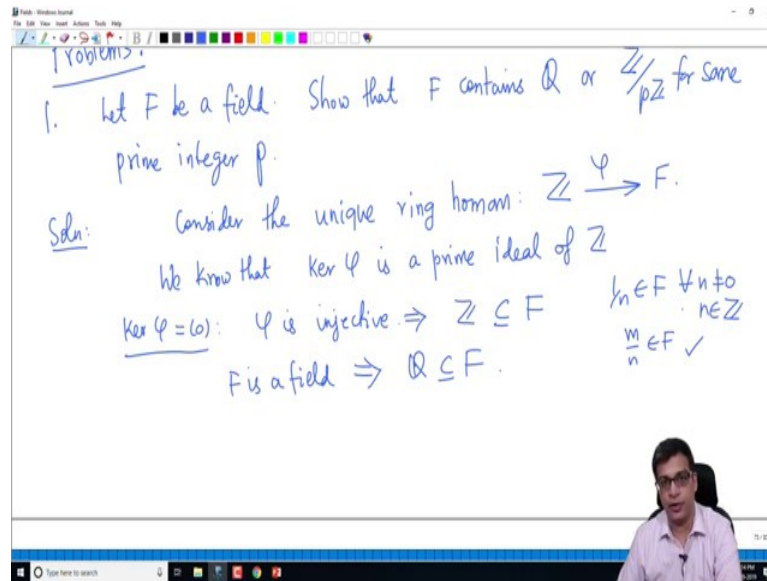 Fields - Windows Journal
File Edit View Insert Actions Tools Help
Problems:
1. Let F be a field. Show that F contains ℚ or ℤ/pℤ for some
prime integer p.
Soln: Consider the unique ring homom: ℤ →^φ F.
We know that Ker φ is a prime ideal of ℤ
Ker φ = (0): φ is injective ⇒ ℤ ⊆ F
F is a field ⇒ ℚ ⊆ F.
1/n ∈ F ∀ n ≠ 0
n ∈ ℤ
m/n ∈ F ✓
Type here to search